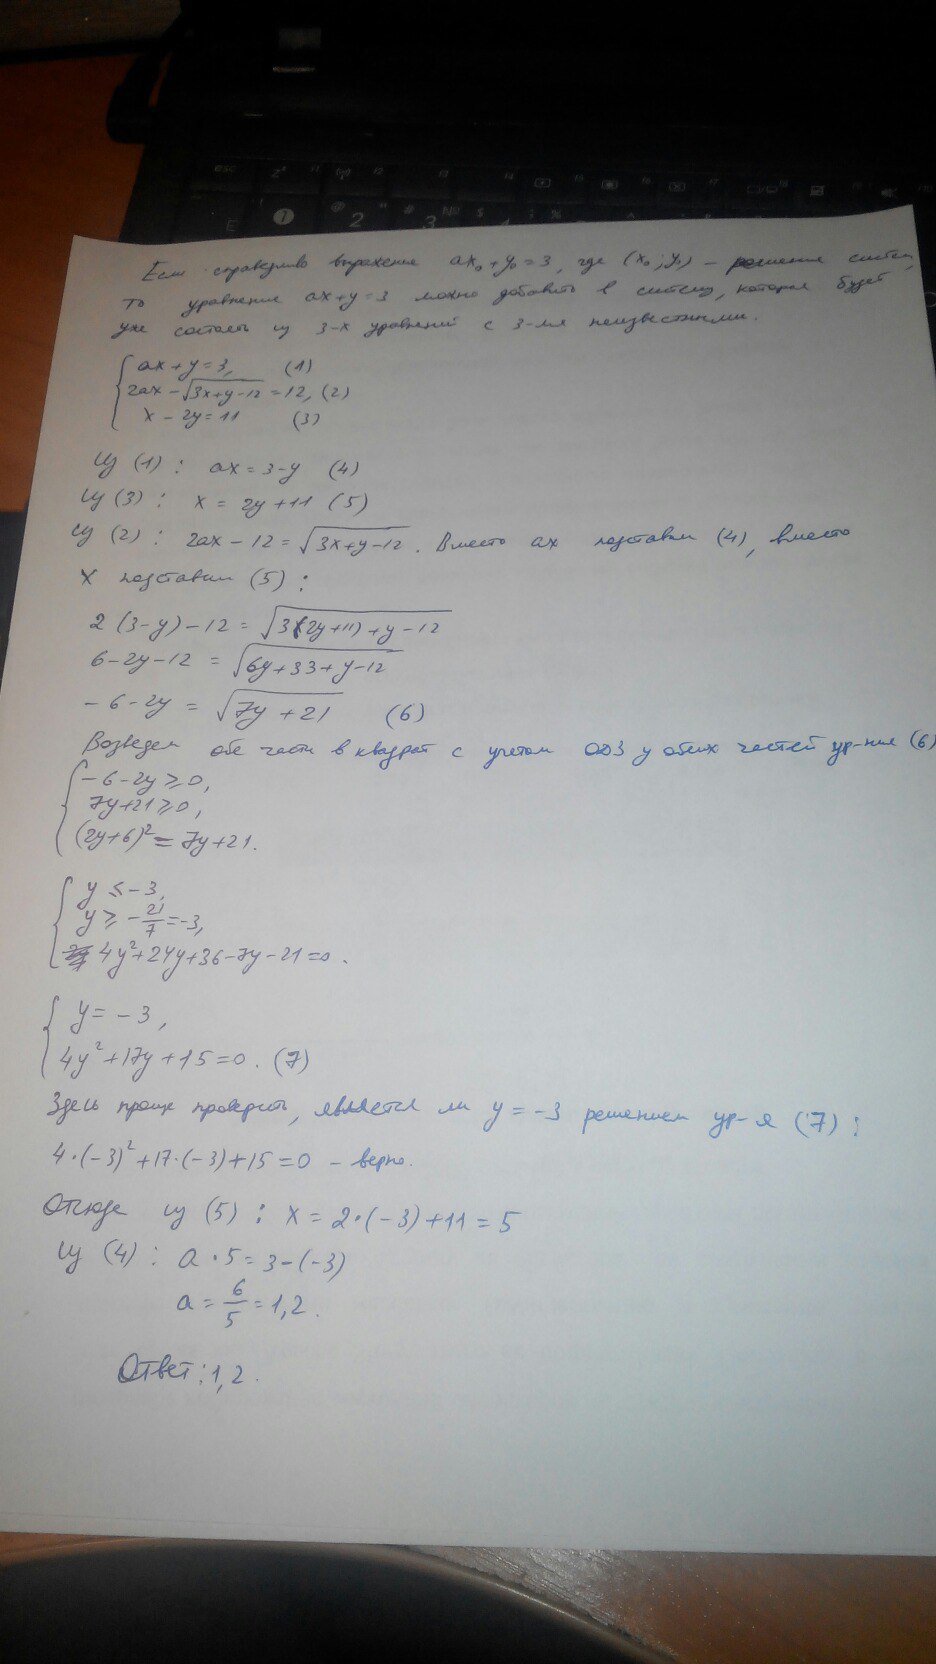 Если справедливо выражение ax₀+y₀=3, где (x₀;y₀) - решение системы,
то уравнение ax+y=3 можно добавить в систему, которая будет
уже состоять из 3-х уравнений с 3-мя неизвестными.
{ ax+y=3, (1)
2ax-√(3x+y-12)=12, (2)
x-2y=11 (3)
Из (1): ax=3-y (4)
Из (3): x=2y+11 (5)
Из (2): 2ax-12=√(3x+y-12). Вместо ax подставим (4), вместо
x подставим (5):
2(3-y)-12=√(3(2y+11)+y-12)
6-2y-12=√(6y+33+y-12)
-6-2y=√(7y+21) (6)
Возведем обе части в квадрат с учетом ОДЗ у обеих частей ур-ния (6)
{ -6-2y≥0,
7y+21≥0,
(2y+6)²=7y+21.
{ y≤-3,
y≥-21/7=-3,
4y²+24y+36-7y-21=0.
{ y=-3,
4y²+17y+15=0. (7)
Здесь проще проверить, является ли y=-3 решением ур-я (7):
4·(-3)²+17·(-3)+15=0 - верно.
Отсюда из (5): x=2·(-3)+11=5
Из (4): a·5=3-(-3)
a=6/5=1,2.
Ответ: 1,2.
esc
E
1
2
3